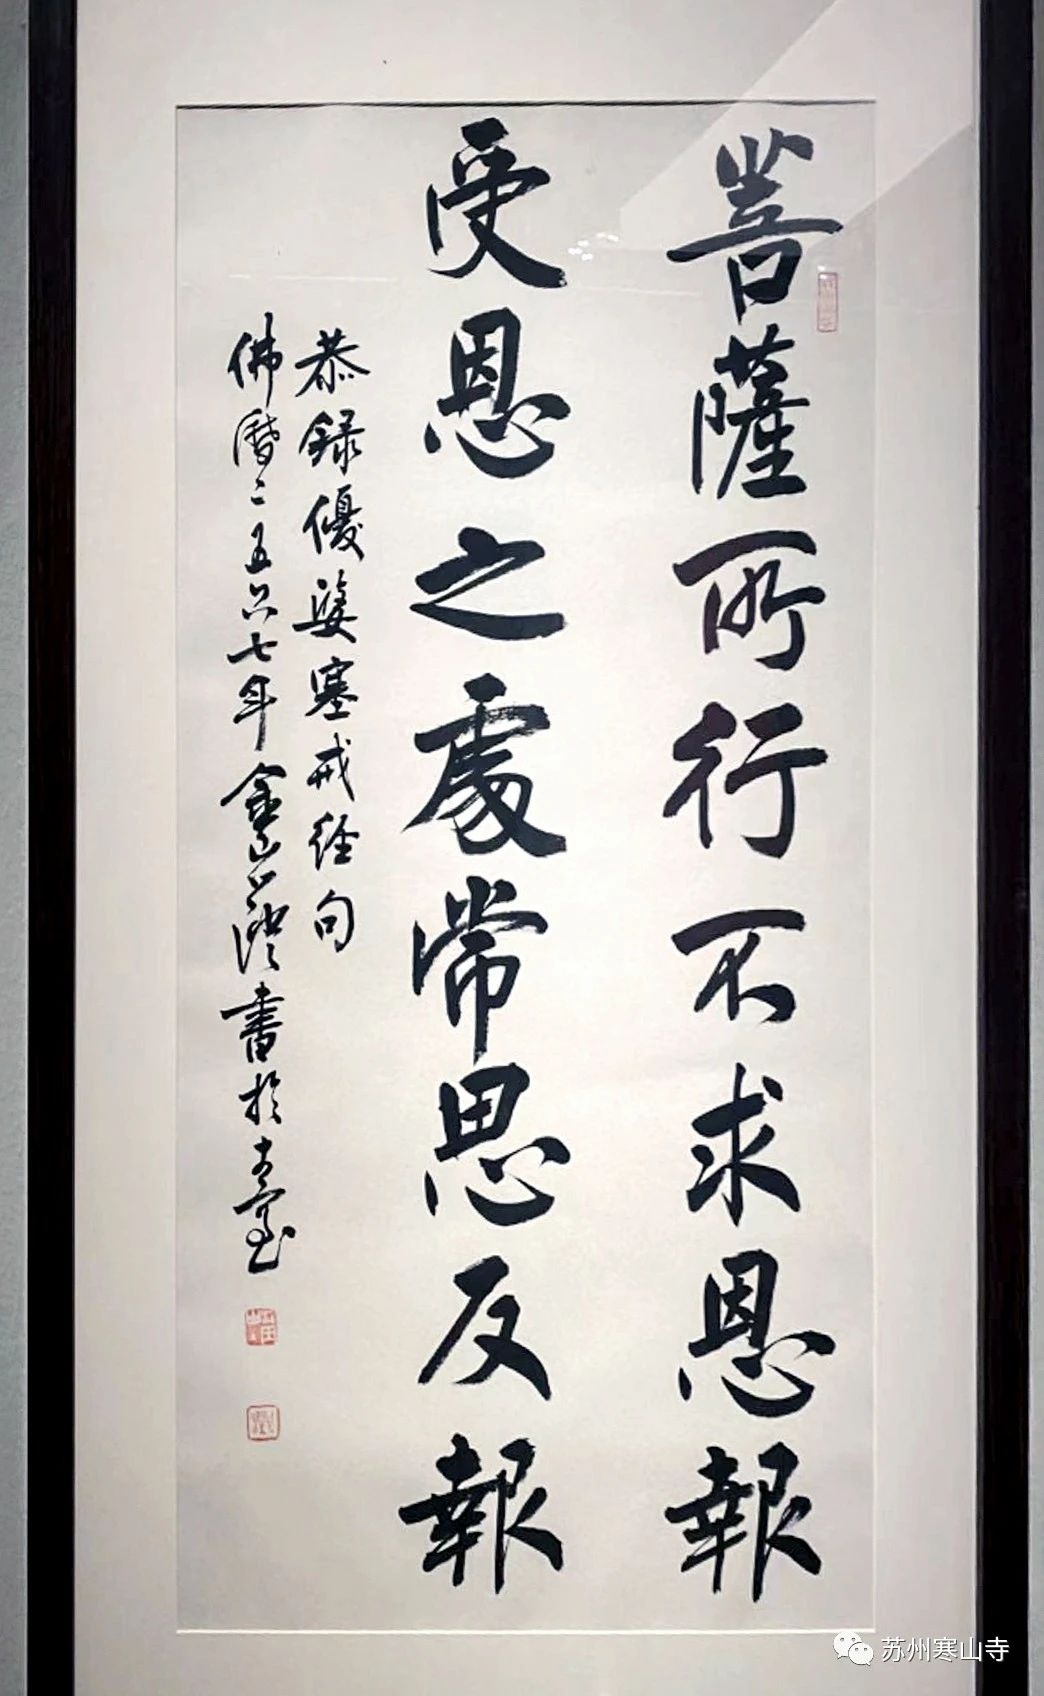 菩薩所行不求恩報
受恩之處常思反報
恭録優婆塞戒経句
佛曆二五六七年金山澄書於臺
苏州寒山寺